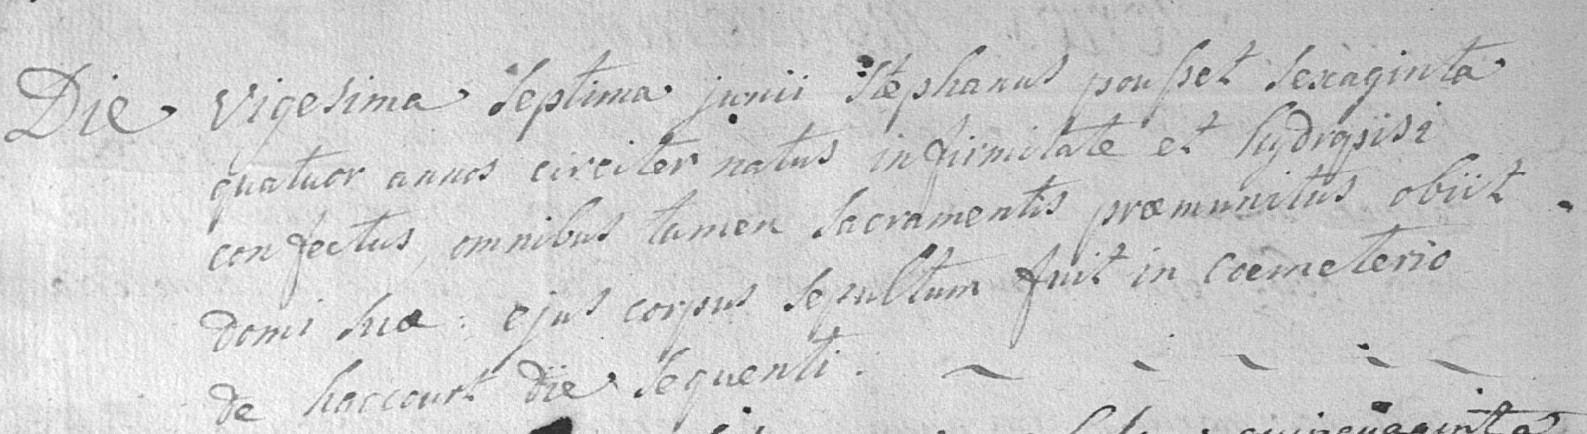 Die vigesima septima junii Stephanus pousset sexaginta
quatuor annos circiter natus infirmitate et hydropisi
confectus, omnibus tamen sacramentis præmunitus obiit
domi suæ: ejus corpus sepultum fuit in coemeterio
de haccourt die sequenti.
quinquaginta